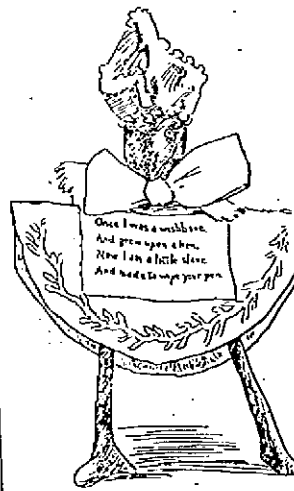 Once I was a wishbone,
And grew upon a hen,
Now I am a little slave
And made to wipe your pen